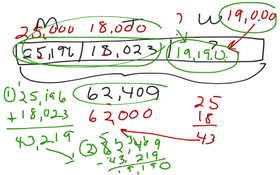 M T W
25,000 18,000 ? 19,000
25,196 18,023 19,190
62,409
① 25,196
+ 18,023
43,219
62,000
25
18
43
② 62,409
- 43,219
19,190